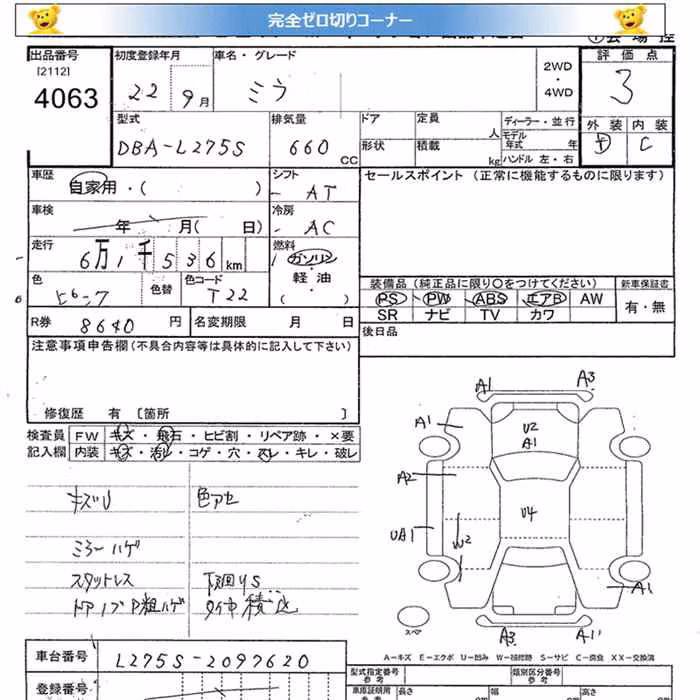 完全ゼロ切りコーナー
出品番号
[2112]
4063
初度登録年月
22 9月
車名・グレード
ミラ
2WD
・
4WD
評価点
3
外装 内装
D C
型式
DBA-L275S
排気量
660
CC
ドア
形状
定員
人
積載
kg
ディーラー・並行
モデル
年式 年
ハンドル 左・右
車歴
自家用・( )
シフト
AT
車検
年 月( 日)
冷房
AC
走行
6万1千536km
燃料
ガソリン
軽油
( )
色
ピンク
色替
色コード
T22
セールスポイント(正常に機能するものに限ります)
装備品(純正品に限り〇をつけてください)
PS PW ABS エアB AW
SR ナビ TV カワ
新車保証書
有・無
R券 8640 円
名変期限 月 日
後日品
注意事項申告欄(不具合内容等は具体的に記入して下さい)
修復歴 有 [箇所 ]
検査員
記入欄
FW キズ・飛石・ヒビ割・リペア跡・×要
内装 キズ・汚レ・コゲ・穴・スレ・キレ・破レ
キズU 色アセ
ミラーハゲ
スタットレス 下廻りS
ドアノブP粗ハゲ タイヤ積込
A1 A3
A1
U2
A1
A2
U4
UA1
W2
A1
スペア
A3 A1
A-キズ E-エクボ U-凹み W-補修跡 S-サビ C-腐食 XX-交換済
車台番号
L275S-2097620
登録番号
型式指定番号
参考
類別区分番号
参考
車庫証明用
参考
長さ
幅
高さ